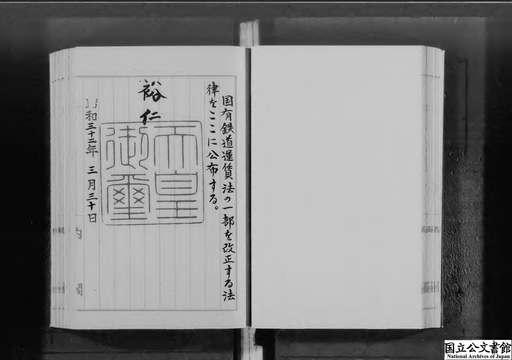 国有鉄道運賃法の一部を改正する法
律をここに公布する。
裕仁
天皇
御璽
昭和三十二年 三月三十日
国立公文書館
National Archives of Japan